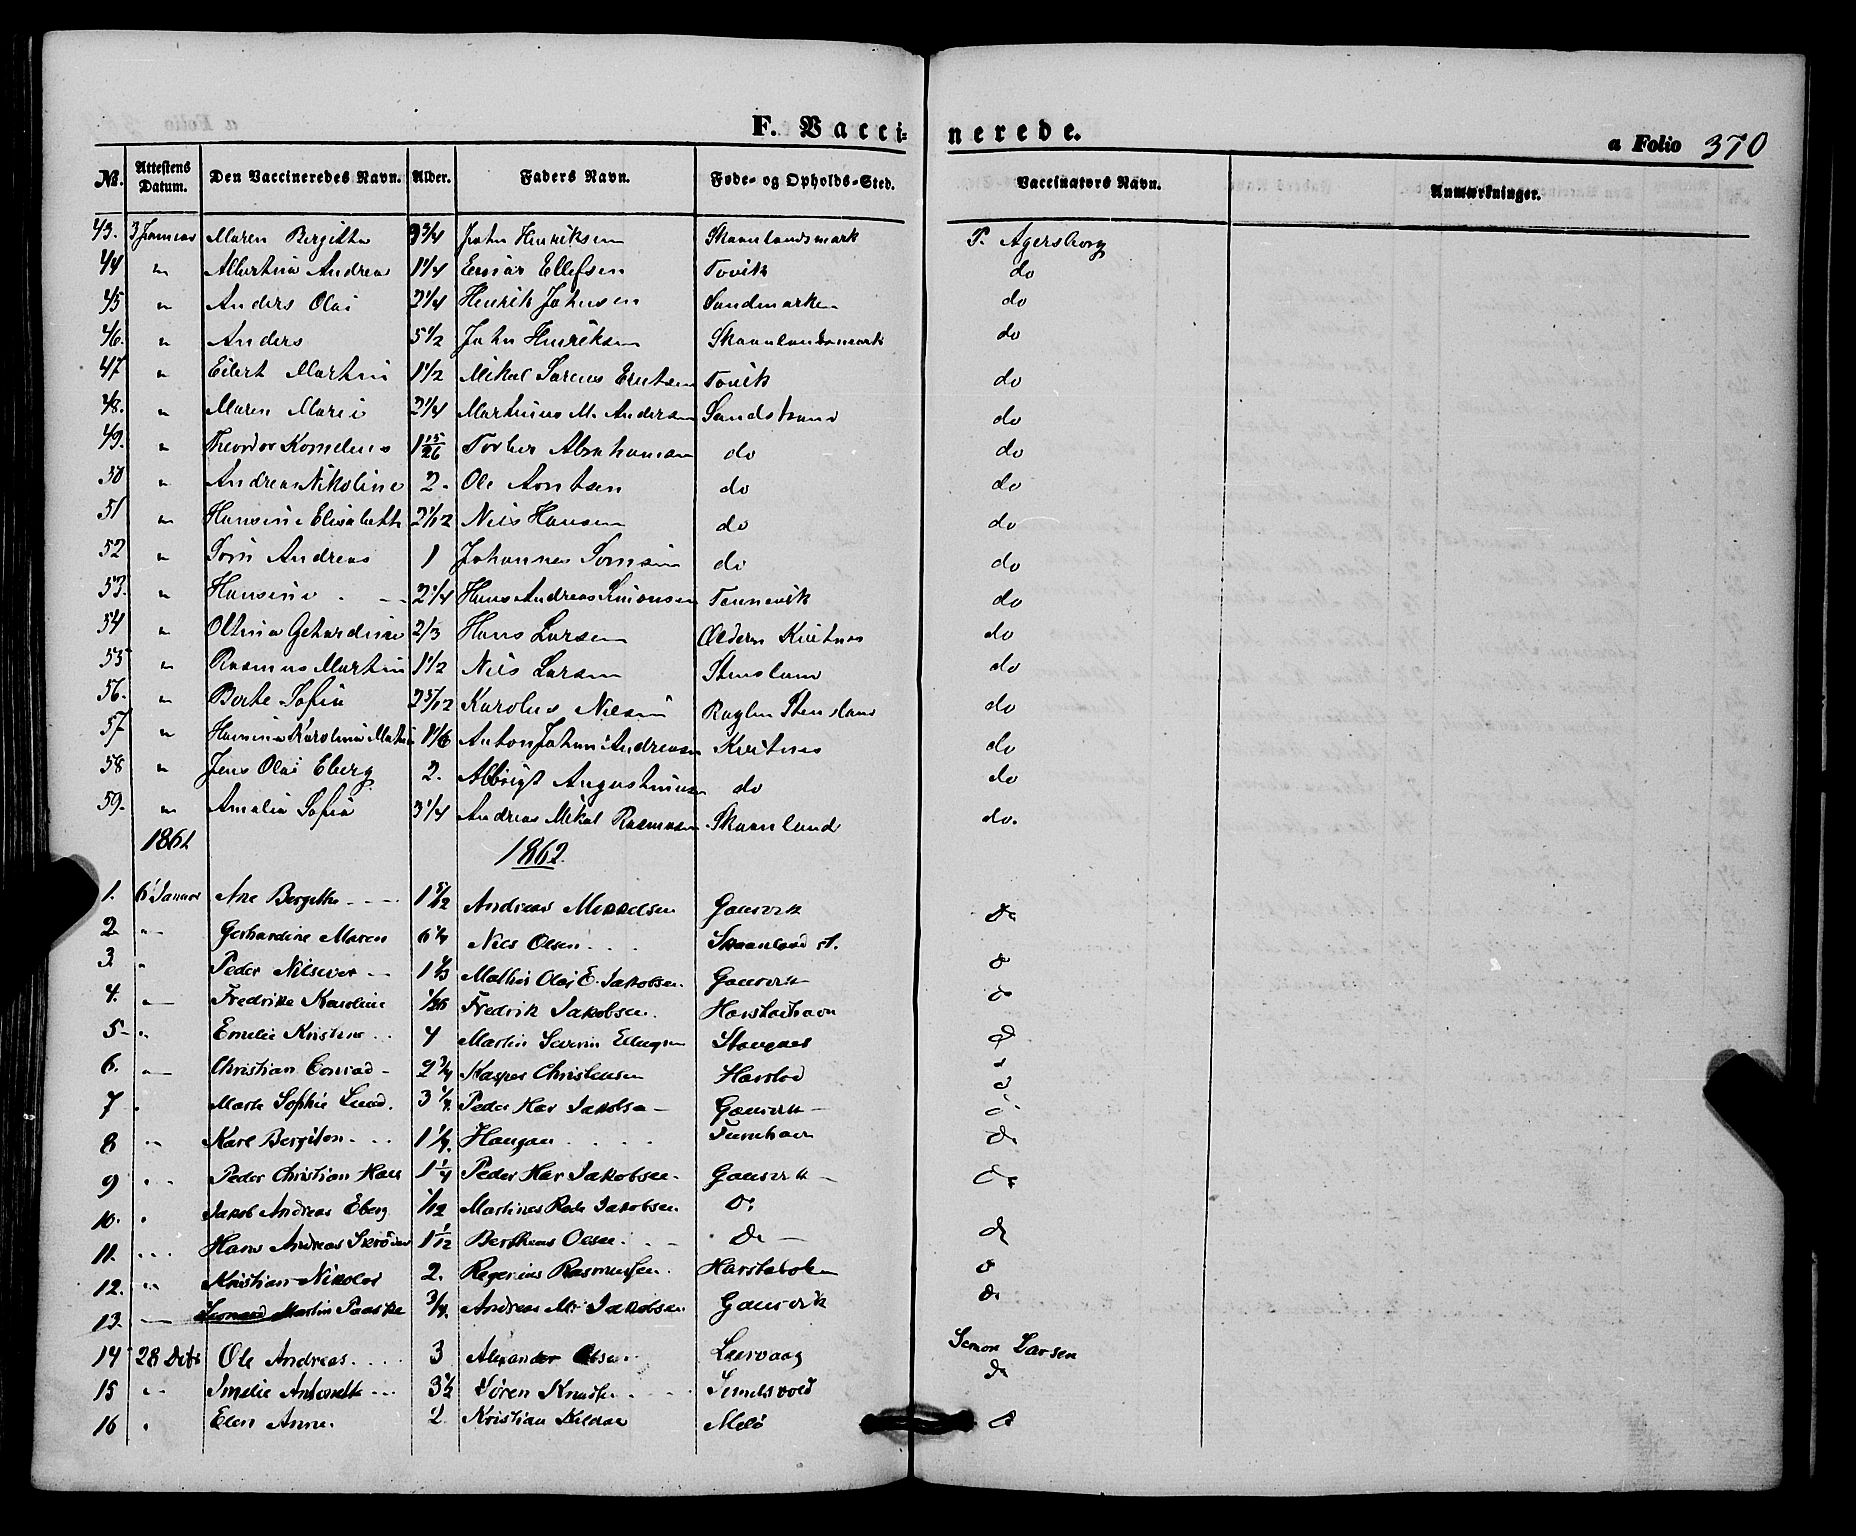 F. Vaccinerede.
a Folio 370
No. Attestens Datum. Den Vaccineredes Navn. Alder. Faders Navn. Føde- og Opholds-Sted. Vaccinators Navn. Anmærkninger.
43. 3 Januar Maren Bergitta 9 3/4 John Henriksen Skaanlandsmark P. Agersborg
44 " Albertine Andrea 1 1/4 Einar Ellefsen Tovik do
45 " Anders Olai 2 1/4 Henrik Johnsen Sandmarken do
46. " Anders 5 1/2 John Henriksen Skaanlandsmark do
47 " Eilert Martin 1 1/2 Mikal Tovik do
48. " Maren Marie 2 1/4 Martinus M. Andersen Sandstrand do
49. " Theordor Kornelius 1 15/26 Torber Abrahamsen do do
50 " Andrea Nikoline 2. Ole Arntsen do do
51 " Hansine Elisabeth 2 1/12 Nils Hansen do do
52 " Andreas 1 Johannes do do
53. " Hansine 2 1/4 Hans Andreas Simonsen Tennevik do
54 " Gehardine 2/3 Hans Larsen Kvitnes do
55 " Rasmus Martin 1 1/2 Nils Larsen Stensland do
56. " Berte Sofia 2 5/12 Karolus Nilsen Stensland do
57. " Hansina Karolina 1 1/6 Anton Johan Andreasen Kvitnes do
58 " Jens Olai Eberg 2. Albrigt Augustinusen do do
59. " Amalia Sofia 3 1/4 Andreas Mikal Rasmusen Skaanland do.
1862 1862.
1. 6 Januar Ane Bergithe 1 5/12 Andreas Mikkelsen Gansvik Do
2. " Gerhardine Maren 6 1/4 Nils Olsen Skaanland
3. " Peder 1 Mathis Olai E. Jakobsen Gansvik
4. " Fredrikke Karoline Fredrik Jakobsen. Harstadhavn
5 " Emelie Kristine 4 Martin Severin Stangnes
6. " Christian Conrad 2 3/4 Kasper Christensen Harstad
7 " Sophie Lund. 3 Peder Har Jakobse Gansvik
8 " Karl 1 1/4 Haugan
9 " Peder Christian Hans 1 1/4 Peder Har Jakobsen Gansvik Do
10. " Jakob Andreas Eberg 1/12 Martines Jakobsen Do
11. " Hans Andreas 1 1/12 Olsen Do Do
12. " Kristian Nikolai 2. Rasmussen
13. Martin Paaske 3/4. Andreas Jakobsen Gansvik Do
14 28 Ole Andreas 3 Alexander Olsen Leervaag Simon Larsen
15 " Emelie 3 1/2 Søren Do
16 " Elen Anne. 2 Kristian Melø Do